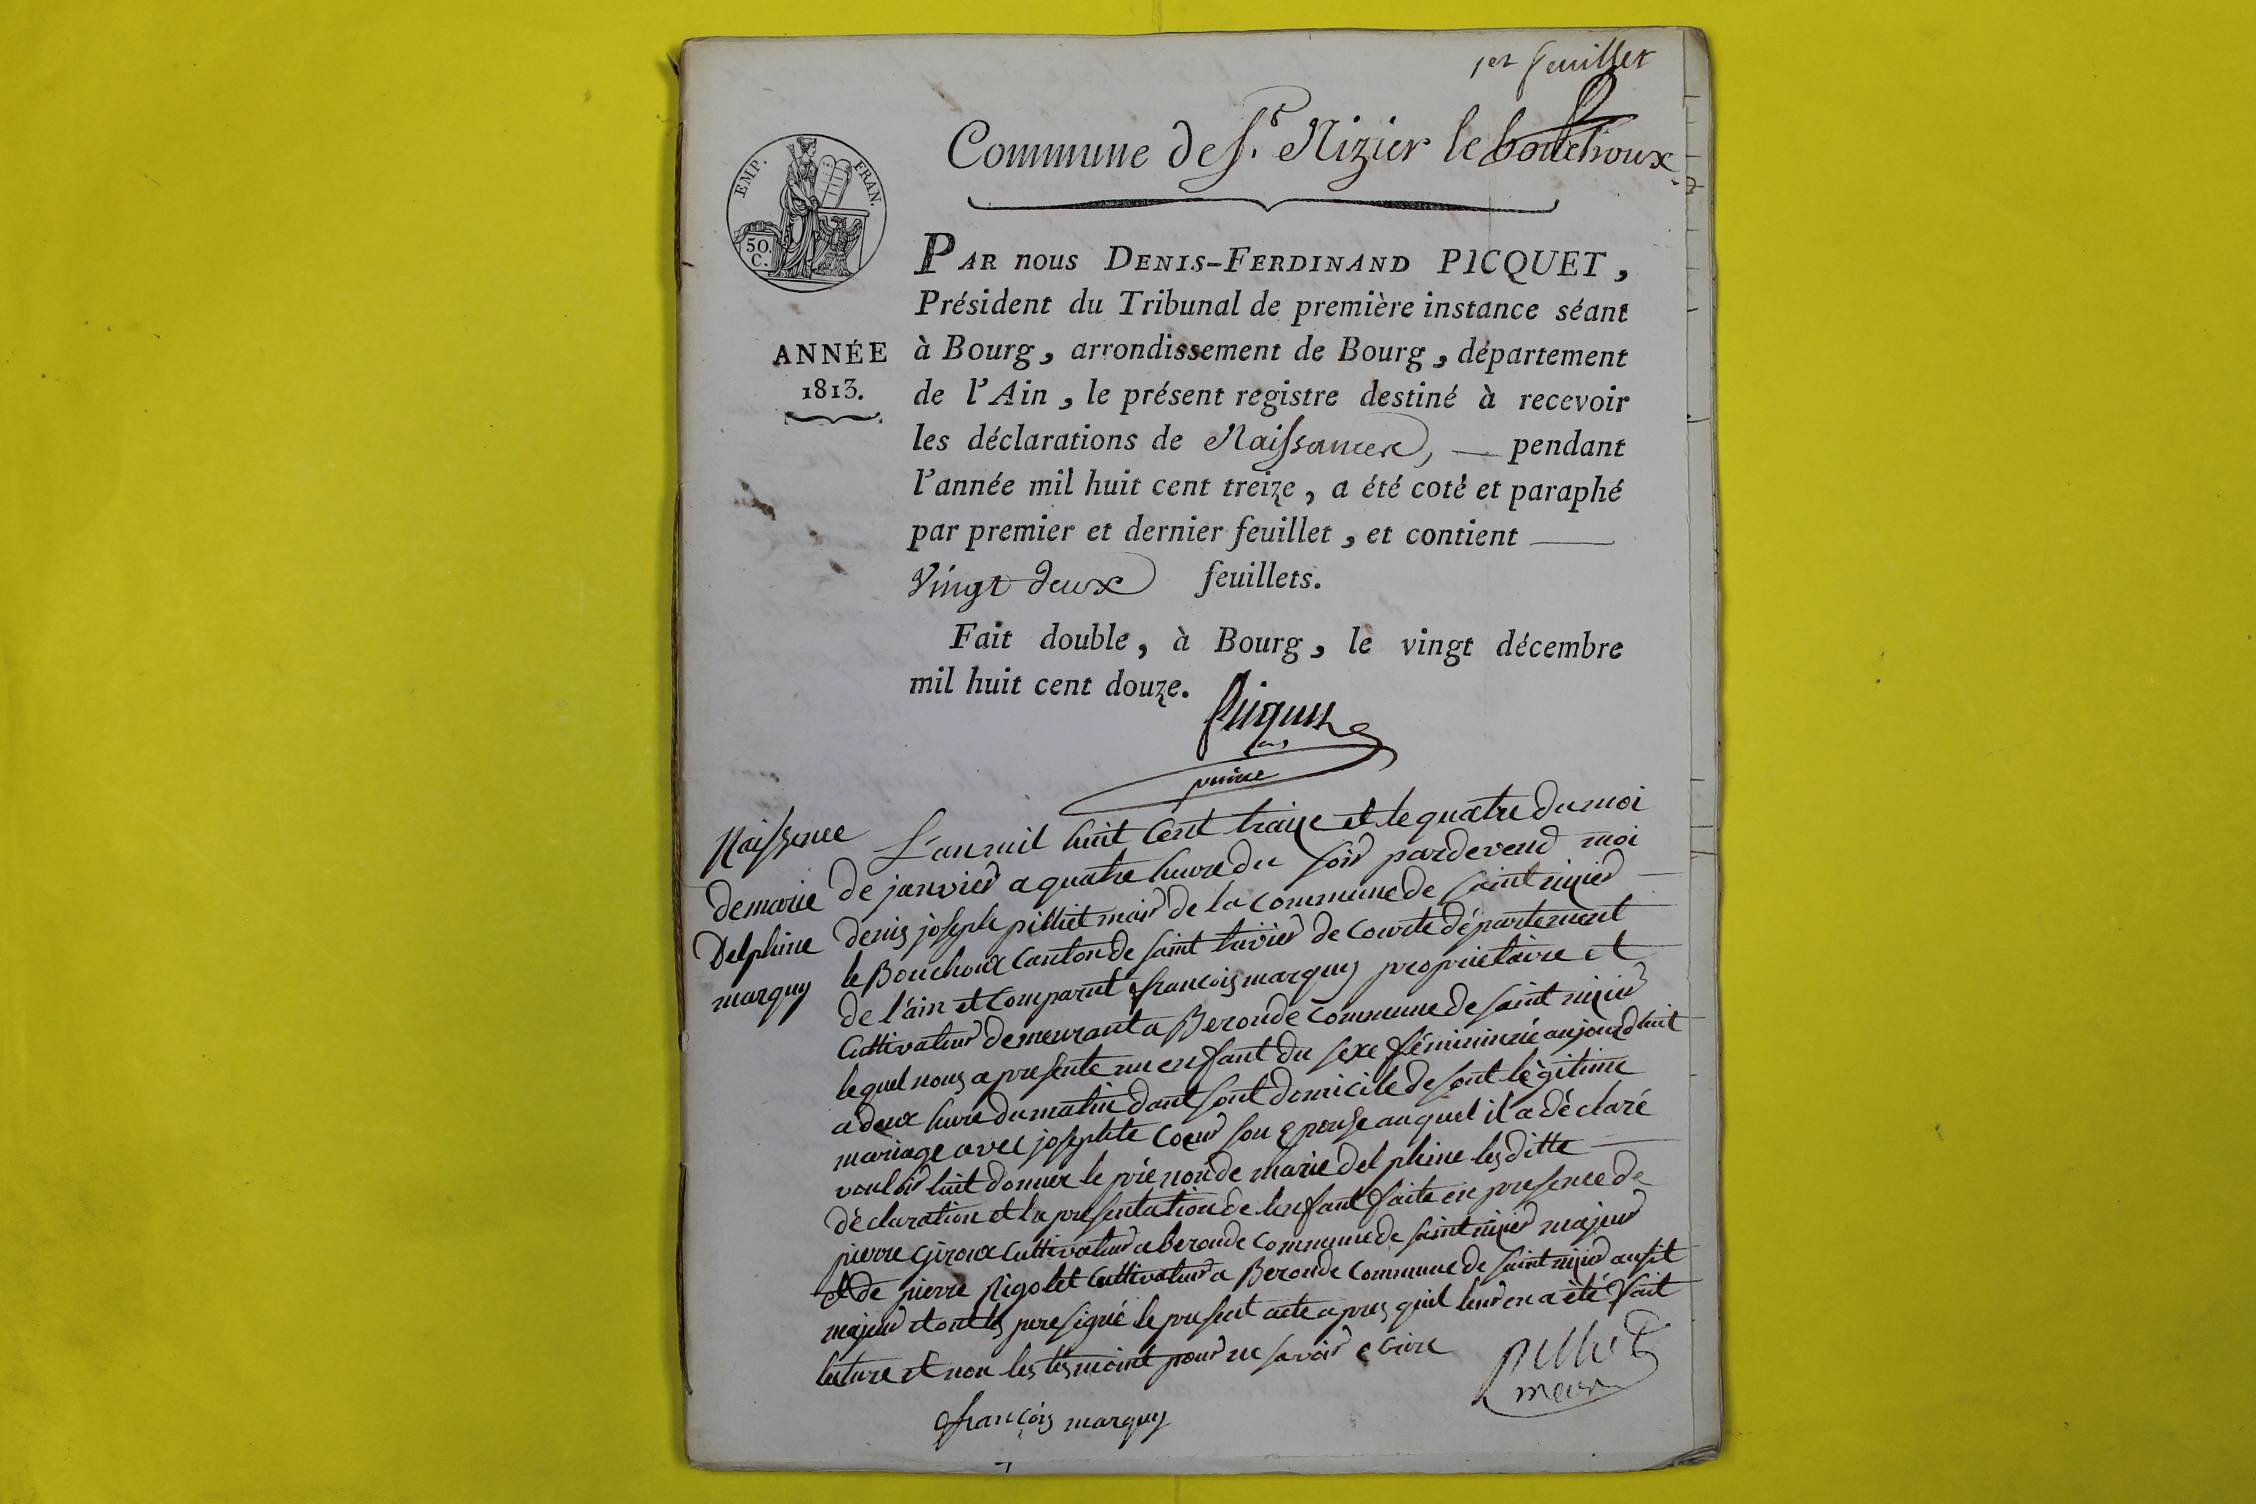 1er feuillet
Commune de St. Nizier le bouchoux
EMP. FRAN.
50.
C.
PAR nous DENIS-FERDINAND PICQUET,
Président du Tribunal de première instance séant
ANNÉE
1813.
à Bourg, arrondissement de Bourg, département
de l'Ain, le présent registre destiné à recevoir
les déclarations de Naissances, — pendant
l'année mil huit cent treize, a été coté et paraphé
par premier et dernier feuillet, et contient —
Vingt deux feuillets.
Fait double, à Bourg, le vingt décembre
mil huit cent douze.
Picquet
Naissence
de marie
Delphine
marquy
L'an mil huit Cent traize et le quatre du moi
de janvier a quatre heure du soir pardevend moi
denis joseph pilliet mair de la commune de saint nizier
le Bouchoux Canton de saint trivier de Courte département
de l'ain et Comparut francois marquy propriétaire et
Cultivateur demeurant a Beronde Commune de saint nizier
lequel nous a presente un enfant du sexe féminin née aujourdhuit
a deux heure du matin dant sont domicile de sont lègitime
mariage avec josephte Coeur son epouse auquel il a déclaré
vouloir luit donner le prénon de marie delphine les ditte
déclaration et la presentation de lenfant faite en presence de
pierre Giroux Cultivateur a beronde commune de saint nizier majeur
et de pierre Rigolet Cultivateur a Beronde Commune de saint nizier ausit
majeur et ont les pere signé le present acte apres quil leur en a été fait
lecture et non les tesmoint pour ne savoir ecrire
pilliet
mair
françois marquy